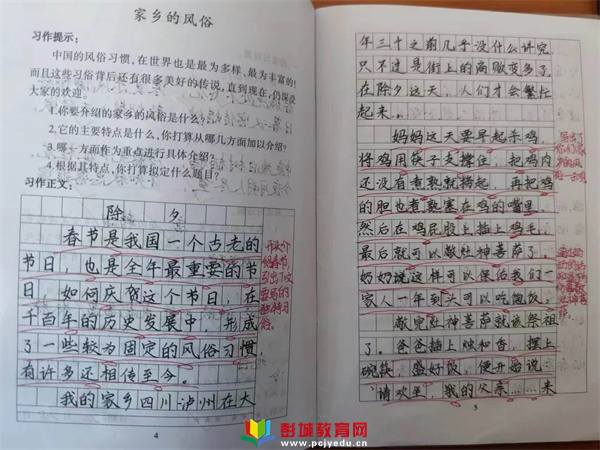 家乡的风俗
习作提示：
中国的风俗习惯，在世界也是最为多样、最为丰富的！
而且这些习俗背后还有很多美好的传说，直到现在，仍深受
大家的欢迎。
1.你要介绍的家乡的风俗是什么？
2.它的主要特点是什么，你打算从哪几方面加以介绍？
3.哪一方面作为重点进行具体介绍？
4.根据其特点，你打算拟定什么题目？
习作正文：
除夕
春节是我国一个古老的
节日，也是全年最重要的节
日，如何庆贺这个节日，在
千百年的历史发展中，形成
了一些较为固定的风俗习惯，
有许多还相传至今。
我的家乡四川泸州在大
4
年三十之前几乎没什么讲究
只不过是街上的商贩变多了
在除夕这天，人们才会繁忙
起来。
妈妈这天要早起杀鸡，
将鸡用筷子支撑住，把鸡内
还没有煮熟就捞起，再把鸡
的胆也煮熟塞在鸡的嘴里，
然后在鸡屁股上插上鸡毛，
最后就可以敬灶神菩萨了。
奶奶说这样可以保佑我们一
家人一年到头可以吃饱饭。
敬完灶神菩萨就该祭祖
了。爸爸插上烛和香，摆上
碗筷，盛好饭，便开始说：
“请欢坐，我的父亲……来
5
彭城教育网
www.pcjyedu.cn